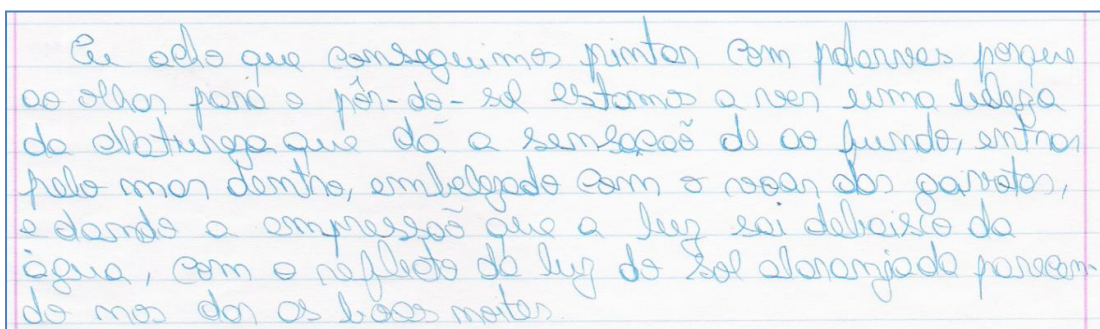 Eu acho que conseguimos pintar com palavras porque
ao olhar para o pôr-do-sol estamos a ver uma beleza
da Natureza que dá a sensação de ao fundo, entrar
pelo mar dentro, embelezado com o voar das gaivotas,
e dando a empressão que a luz sai debaixo da
água, com o reflecto da luz do Sol alaranjada parecen-
do nos dar as boas noites.